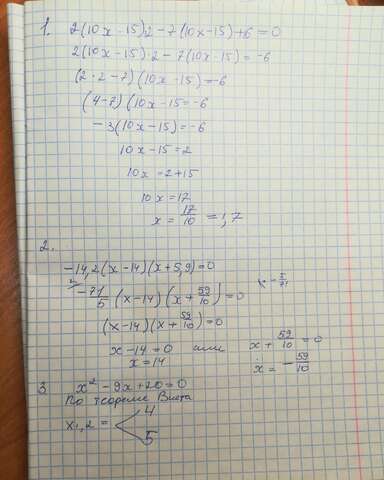 1. 2(10x-15)2-7(10x-15)+6=0
2(10x-15)·2-7(10x-15)=-6
(2·2-7)(10x-15)=-6
(4-7)(10x-15=-6
-3(10x-15)=-6
10x-15=2
10x=2+15
10x=17
x=17/10=1,7
2.
-14,2(x-14)(x+5,9)=0
-71/5(x-14)(x+59/10)=0
(x-14)(x+59/10)=0
x-14=0 или x+59/10=0
x=14 x=-59/10
3 x²-9x+20=0
По теореме Виета
x1,2= 4
5